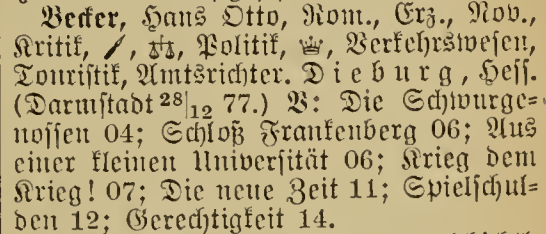 Becker, Hans Otto, Rom., Erz., Nov.,
Kritik, Politik, Verkehrswesen,
Touristik, Amtsrichter. Dieburg, Hess.
(Darmstadt 28|12 77.) B: Die Schwurge=
nossen 04; Schloß Frankenberg 06; Aus
einer kleinen Universität 06; Krieg dem
Krieg! 07; Die neue Zeit 11; Spielschul=
den 12; Gerechtigkeit 14.